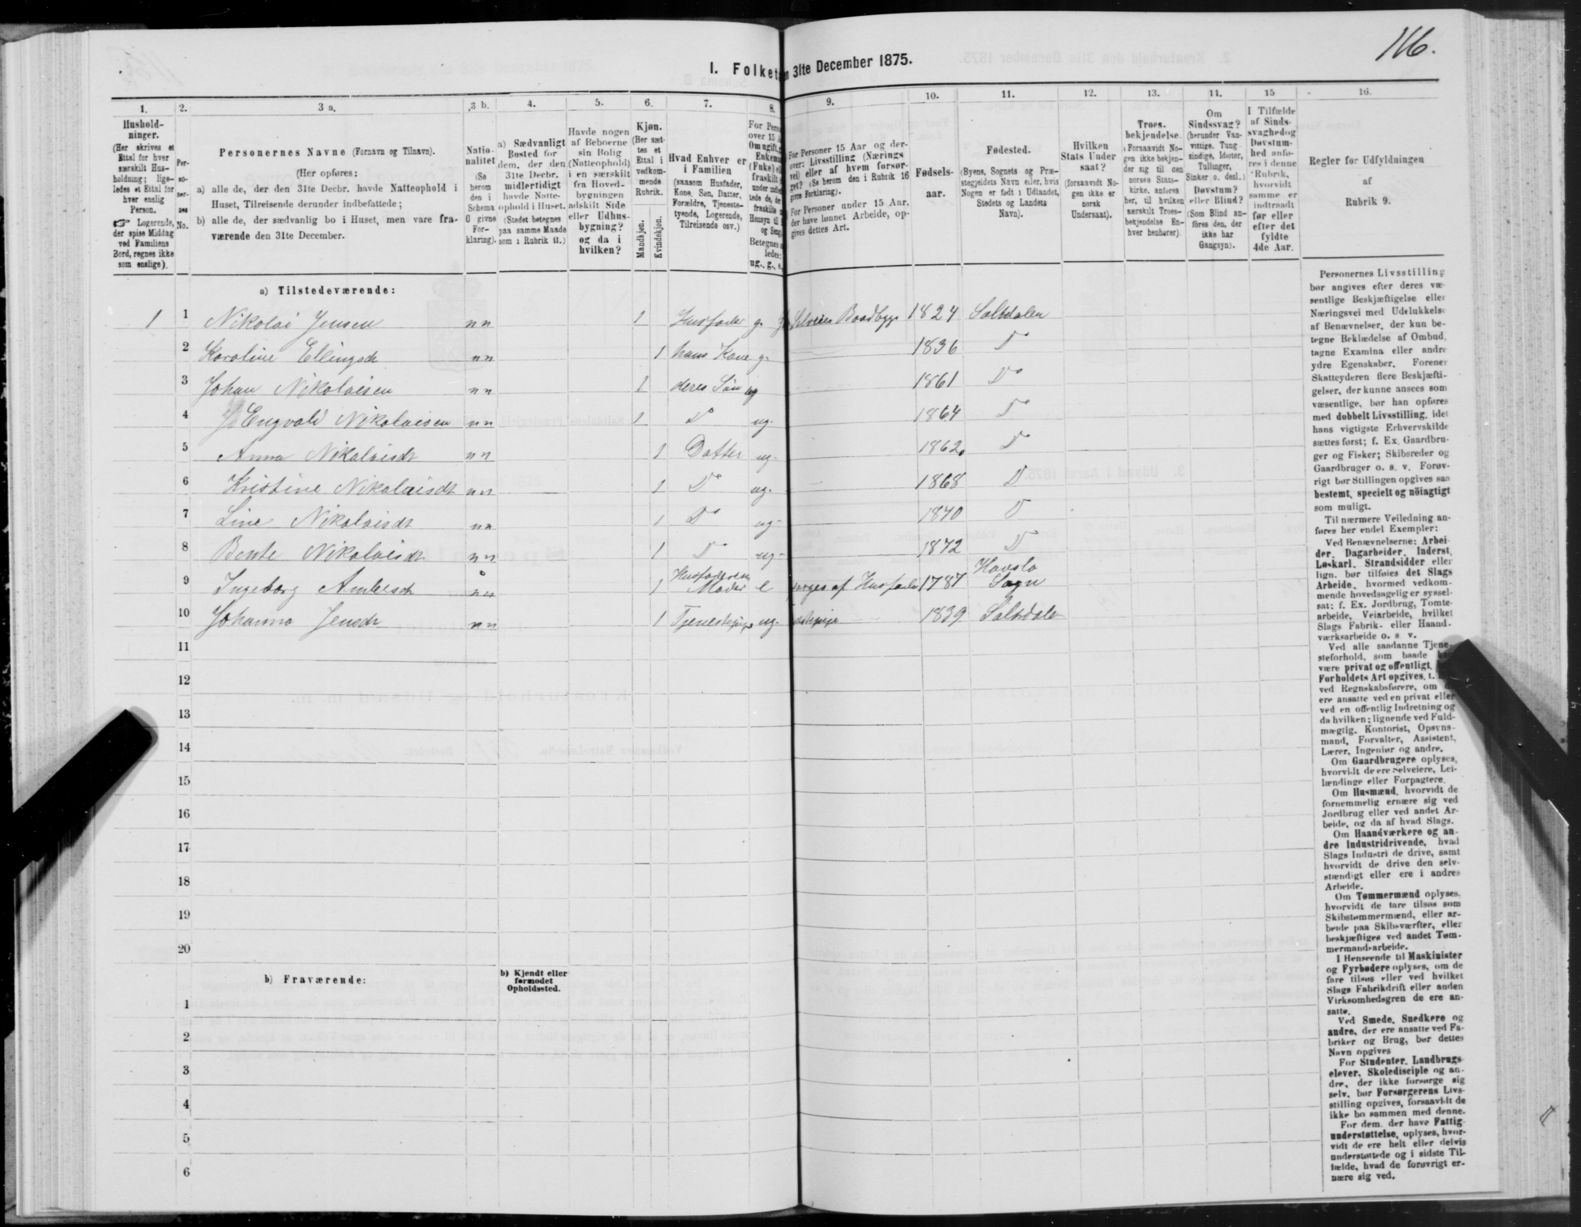 116.
I. Folket
n 31te December 1875.
1. 2. 3 a. 3 b. 4. 5. 6. 7. 8. 9. 10. 11. 12. 13. 14. 15 16.
Hushold-
ninger.
(Her skrives et
Ettal for hver
særskilt Hus-
holdning; lige-
ledes et Ettal for
hver enslig
Person.
☞ Logerende,
der spise Middag
ved Familiens
Bord, regnes ikke
som enslige).
Per-
so-
ner-
nes
No.
Personernes Navne (Fornavn og Tilnavn).
(Her opføres:
a) alle de, der den 31te Decbr. havde Natteophold i
Huset, Tilreisende derunder indbefattede;
b) alle de, der sædvanlig bo i Huset, men vare fra-
værende den 31te December.
Natio-
nalitet
(Se
herom
den i
Schema
0 givne
For-
klaring).
a) Sædvanligt
Bosted for
dem, der den
31te Decbr.
midlertidigt
havde Natte-
ophold i Huset.
(Stedet betegnes
paa samme Maade
som i Rubrik 11.)
Havde nogen
af Beboerne
sin Bolig
(Natteophold)
i en særskilt
fra Hoved-
bygningen
adskilt Side
eller Udhus-
bygning?
og da i
hvilken?
Kjøn.
(Her sæt-
tes et
Ettal i
vedkom-
mende
Rubrik.
Mandkjøn.
Kvindekjøn.
Hvad Enhver er
i Familien
(saasom Husfader,
Kone, Søn, Datter,
Forældre, Tjeneste-
tyende, Logerende,
Tilreisende osv.)
For Pers
over 15 A
Om ugift,
Enkem
(Fuke) el
fraskilt
Betegnes
ledes:
ug., g., e.
For Personer 15 Aar og der-
over: Livsstilling (Nærings
vei) eller af hvem forsør-
get? (Se herom den i Rubrik 16
givne Forklaring).
For Personer under 15 Aar.
der have lønnet Arbeide, op-
gives dettes Art.
Fødsels-
aar.
Fødested.
(Byens, Sognets og Præ-
stegjeldets Navn eller, hvis
Nogen er født i Udlandet,
Stedets og Landets
Navn).
Hvilken
Stats Under
saat?
(forsaavidt No-
gen ikke er
norsk
Undersaat).
Troes-
bekjendelse.
(Forsaavidt No-
gen ikke bekjen-
der sig til den
norske Stats-
kirke, anføres
her, til hvilken
særskilt Troes-
bekjendelse En-
hver henhører).
Om
Sindssvag?
(herunder Van-
vittige, Tung-
sindige, Idioter,
Tullinger,
Sinker o. desl.)
Døvstum?
eller Blind?
(Som Blind an-
føres den, der
ikke har
Gangsyn).
I Tilfælde
af Sinds-
svaghedog
Døvstum-
hed anfø-
res i denne
Rubrik,
hvorvidt
samme er
indtraadt
før eller
efter det
fyldte
4de Aar.
Regler for Udfyldningen
af
Rubrik 9.
a) Tilstedeværende:
1 1 Nikolai Jensen nn 1 Husfader g. Selveier Baadbygger 1824 Saltdalen
2 Karoline Ellingsdt nn 1 hans Kone g. 1836 Do
3 Johan Nikolaisen nn 1 deres Søn ug 1861 Do
4 Engvald Nikolaisen nn 1 Do ug. 1864 Do
5 Anna Nikolaisdt nn 1 Datter ug. 1862 Do
6 Kristine Nikolaisdt nn 1 Do ug. 1868 D
7 Line Nikolaisdt nn 1 Do ug. 1870 D
8 Bente Nikolaisdt nn 1 Do ug. 1872 D
9 Ingeborg Andersdt nn 1 Husfaderens Moder e forsørges af Husfaderen 1787 Havslo Sogn
10 Johanna Jensdt nn 1 Tjenestepige ug. 1839 Saltdalen
11
12
13
14
15
16
17
18
19
20
b) Fraværende:
b) Kjendt eller
formodet
Opholdssted.
1
2
3
4
5
6
Personernes Livsstilling
bør angives efter deres væ-
sentlige Beskjæftigelse eller
Næringsvei med Udelukkelse
af Benævnelser, der kun be-
tegne Beklædelse af Ombud,
tagne Examina eller andre
ydre Egenskaber. Forener
Skatteyderen flere Beskjæfti-
gelser, der kunne ansees som
væsentlige, bør han opføres
med dobbelt Livsstilling, idet
hans vigtigste Erhvervskilde
sættes først; f. Ex. Gaardbru-
ger og Fisker; Skibsreder og
Gaardbruger o. s. v. Forøv-
rigt bør Stillingen opgives saa
bestemt, specielt og nöiagtigt
som muligt.
Til nærmere Veiledning an-
føres her endel Exempler:
Ved Benævnelserne: Arbei-
der, Dagarbeider, Inderst,
Løskarl, Strandsidder eller
lign. bør tilføies det Slags
Arbeide, hvormed vedkom-
mende hovedsagelig er syssel-
sat: f. Ex. Jordbrug, Tomte-
arbeide, Veiarbeide, hvilket
Slags Fabrik- eller Haand-
værksarbeide o. s v.
Ved alle saadanne Tjene-
steforhold, som baade
være privat og offentligt,
Forholdets Art opgives, t.
ved Regnskabsførere, om
ere ansatte ved en privat eller
ved en offentlig Indretning og
da hvilken; lignende ved Fuld-
mægtig, Kontorist, Opsyns-
mand, Forvalter, Assistent,
Lærer, Ingeniør og andre.
Om Gaardbrugere oplyses,
hvorvidt de ere Selveiere, Lei-
lændinge eller Forpagtere.
Om Husmænd, hvorvidt de
fornemmelig ernære sig ved
Jordbrug eller ved andet Ar-
beide, og da af hvad Slags.
Om Haandværkere og an-
dre Industridrivende, hvad
Slags Industri de drive, samt
hvorvidt de drive den selv-
stændigt eller ere i andres
Arbeide.
Om Tømmermænd oplyses,
hvorvidt de fare tilsøs som
Skibstømmermænd, eller ar-
beide paa Skibsværfter, eller
beskjæftiges ved andet Tøm-
mermandsarbeide.
I Henseende til Maskinister
og Fyrbødere oplyses, om de
fare tilsøs eller ved hvilket
Slags Fabrikdrift eller anden
Virksomhedsgren de ere an-
satte.
Ved Smede, Snedkere og
andre, der ere ansatte ved Fa-
briker og Brug, bør dettes
Navn opgives
For Studenter, Landbrugs-
elever, Skoledisciple og an-
dre, der ikke forsørge sig
selv, bør Forsørgerens Livs-
stilling opgives, forsaavidt de
ikke bo sammen med denne.
For dem, der have Fattig-
understøttelse, oplyses, hvor-
vidt de ere helt eller delvis
understøttede og i sidste Til-
fælde, hvad de forøvrigt er-
nære sig ved.